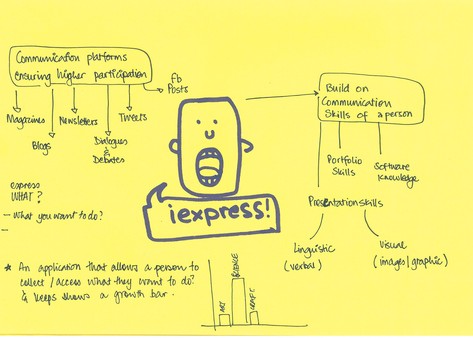 Communication platforms
ensuring higher participation
fb
Posts
Magazines
Blogs
Newsletters
Dialogues
&
Debates
Tweets
Build on
Communication
Skills of a person
Portfolio
Skills
Software
Knowledge
Presentation Skills
Linguistic
(verbal)
Visual
(images/graphic)
iexpress!
express
WHAT?
- What you want to do?
-
* An application that allows a person to
collect /access what they want to do?
& keeps shows a growth bar.
ART
SCIENCE